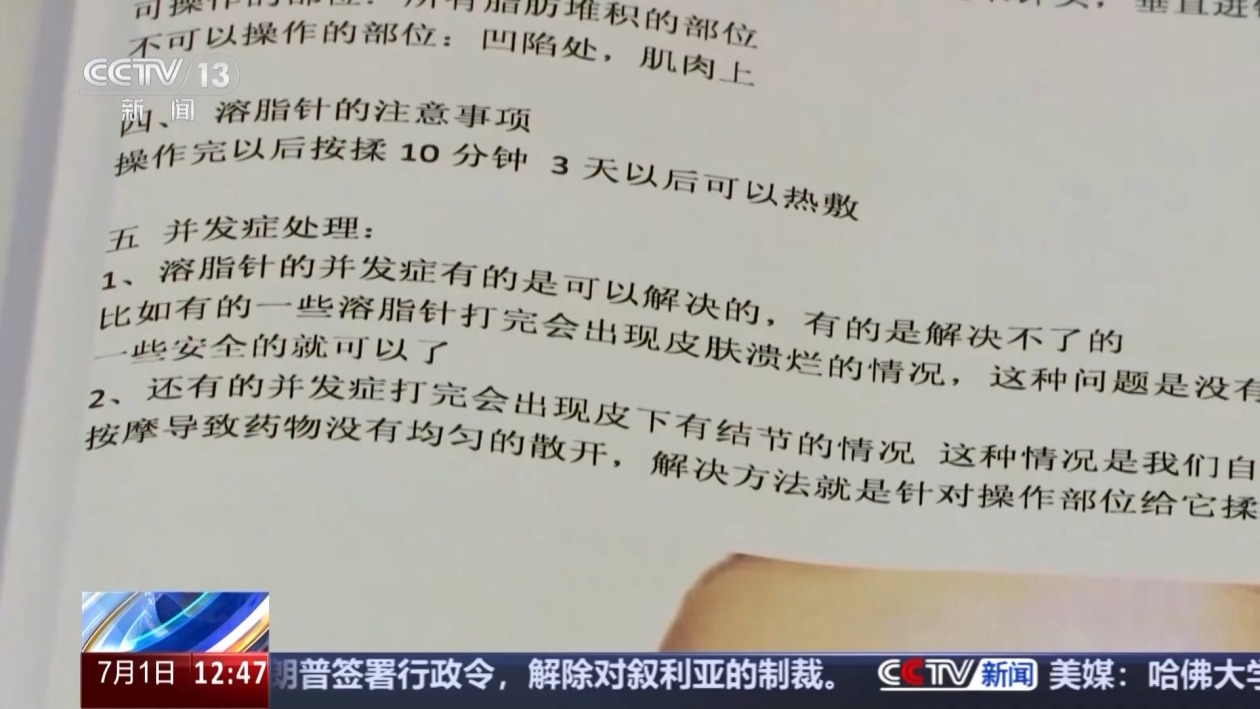 可操作的部位：所有脂肪堆积的部位
不可以操作的部位：凹陷处，肌肉上
CCTV 13
新闻
四、溶脂针的注意事项
操作完以后按揉 10 分钟 3 天以后可以热敷
五 并发症处理：
1、溶脂针的并发症有的是可以解决的，有的是解决不了的
比如有的一些溶脂针打完会出现皮肤溃烂的情况，这种问题是没有
一些安全的就可以了
2、还有的并发症打完会出现皮下有结节的情况 这种情况是我们自
按摩导致药物没有均匀的散开，解决方法就是针对操作部位给它揉
7月1日 12:47
朗普签署行政令，解除对叙利亚的制裁。 CCTV新闻 美媒：哈佛大学